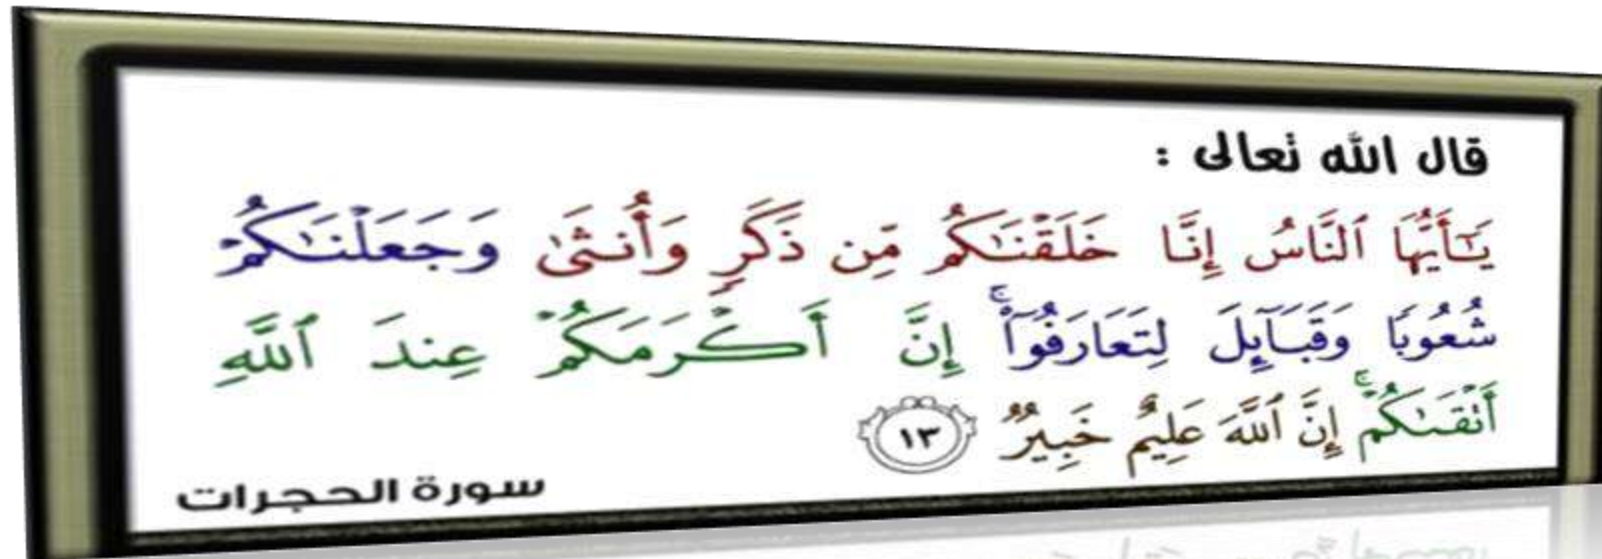 قال الله تعالى :
يَـٰٓأَيُّهَا ٱلنَّاسُ إِنَّا خَلَقْنَـٰكُم مِّن ذَكَرٍ وَأُنثَىٰ وَجَعَلْنَـٰكُمْ
شُعُوبًا وَقَبَآئِلَ لِتَعَارَفُوٓا۟ ۚ إِنَّ أَكْرَمَكُمْ عِندَ ٱللَّهِ
أَتْقَىٰكُمْ ۚ إِنَّ ٱللَّهَ عَلِيمٌ خَبِيرٌ ١٣
سورة الحجرات